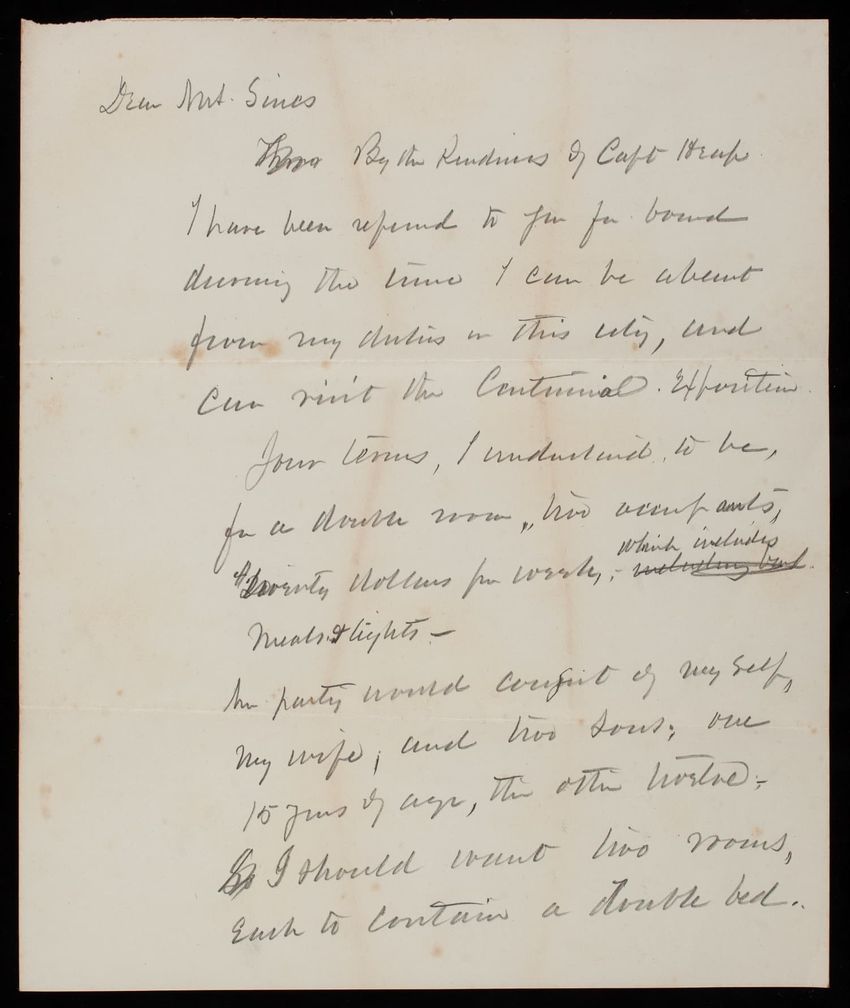 Dear Mrs. Sines
By the Kindness of Capt Heap
I have been referred to you for board
during the time I can be absent
from my duties in this city, and
can visit the Centennial Exposition.
Your terms, I understand, to be,
for a double room, two occupants,
which includes
Twenty dollars per week, - including bed
Meals & lights -
The party would consist of my self,
my wife, and two sons; one
15 years of age, the other twelve;
So I should want two rooms,
Each to contain a double bed.